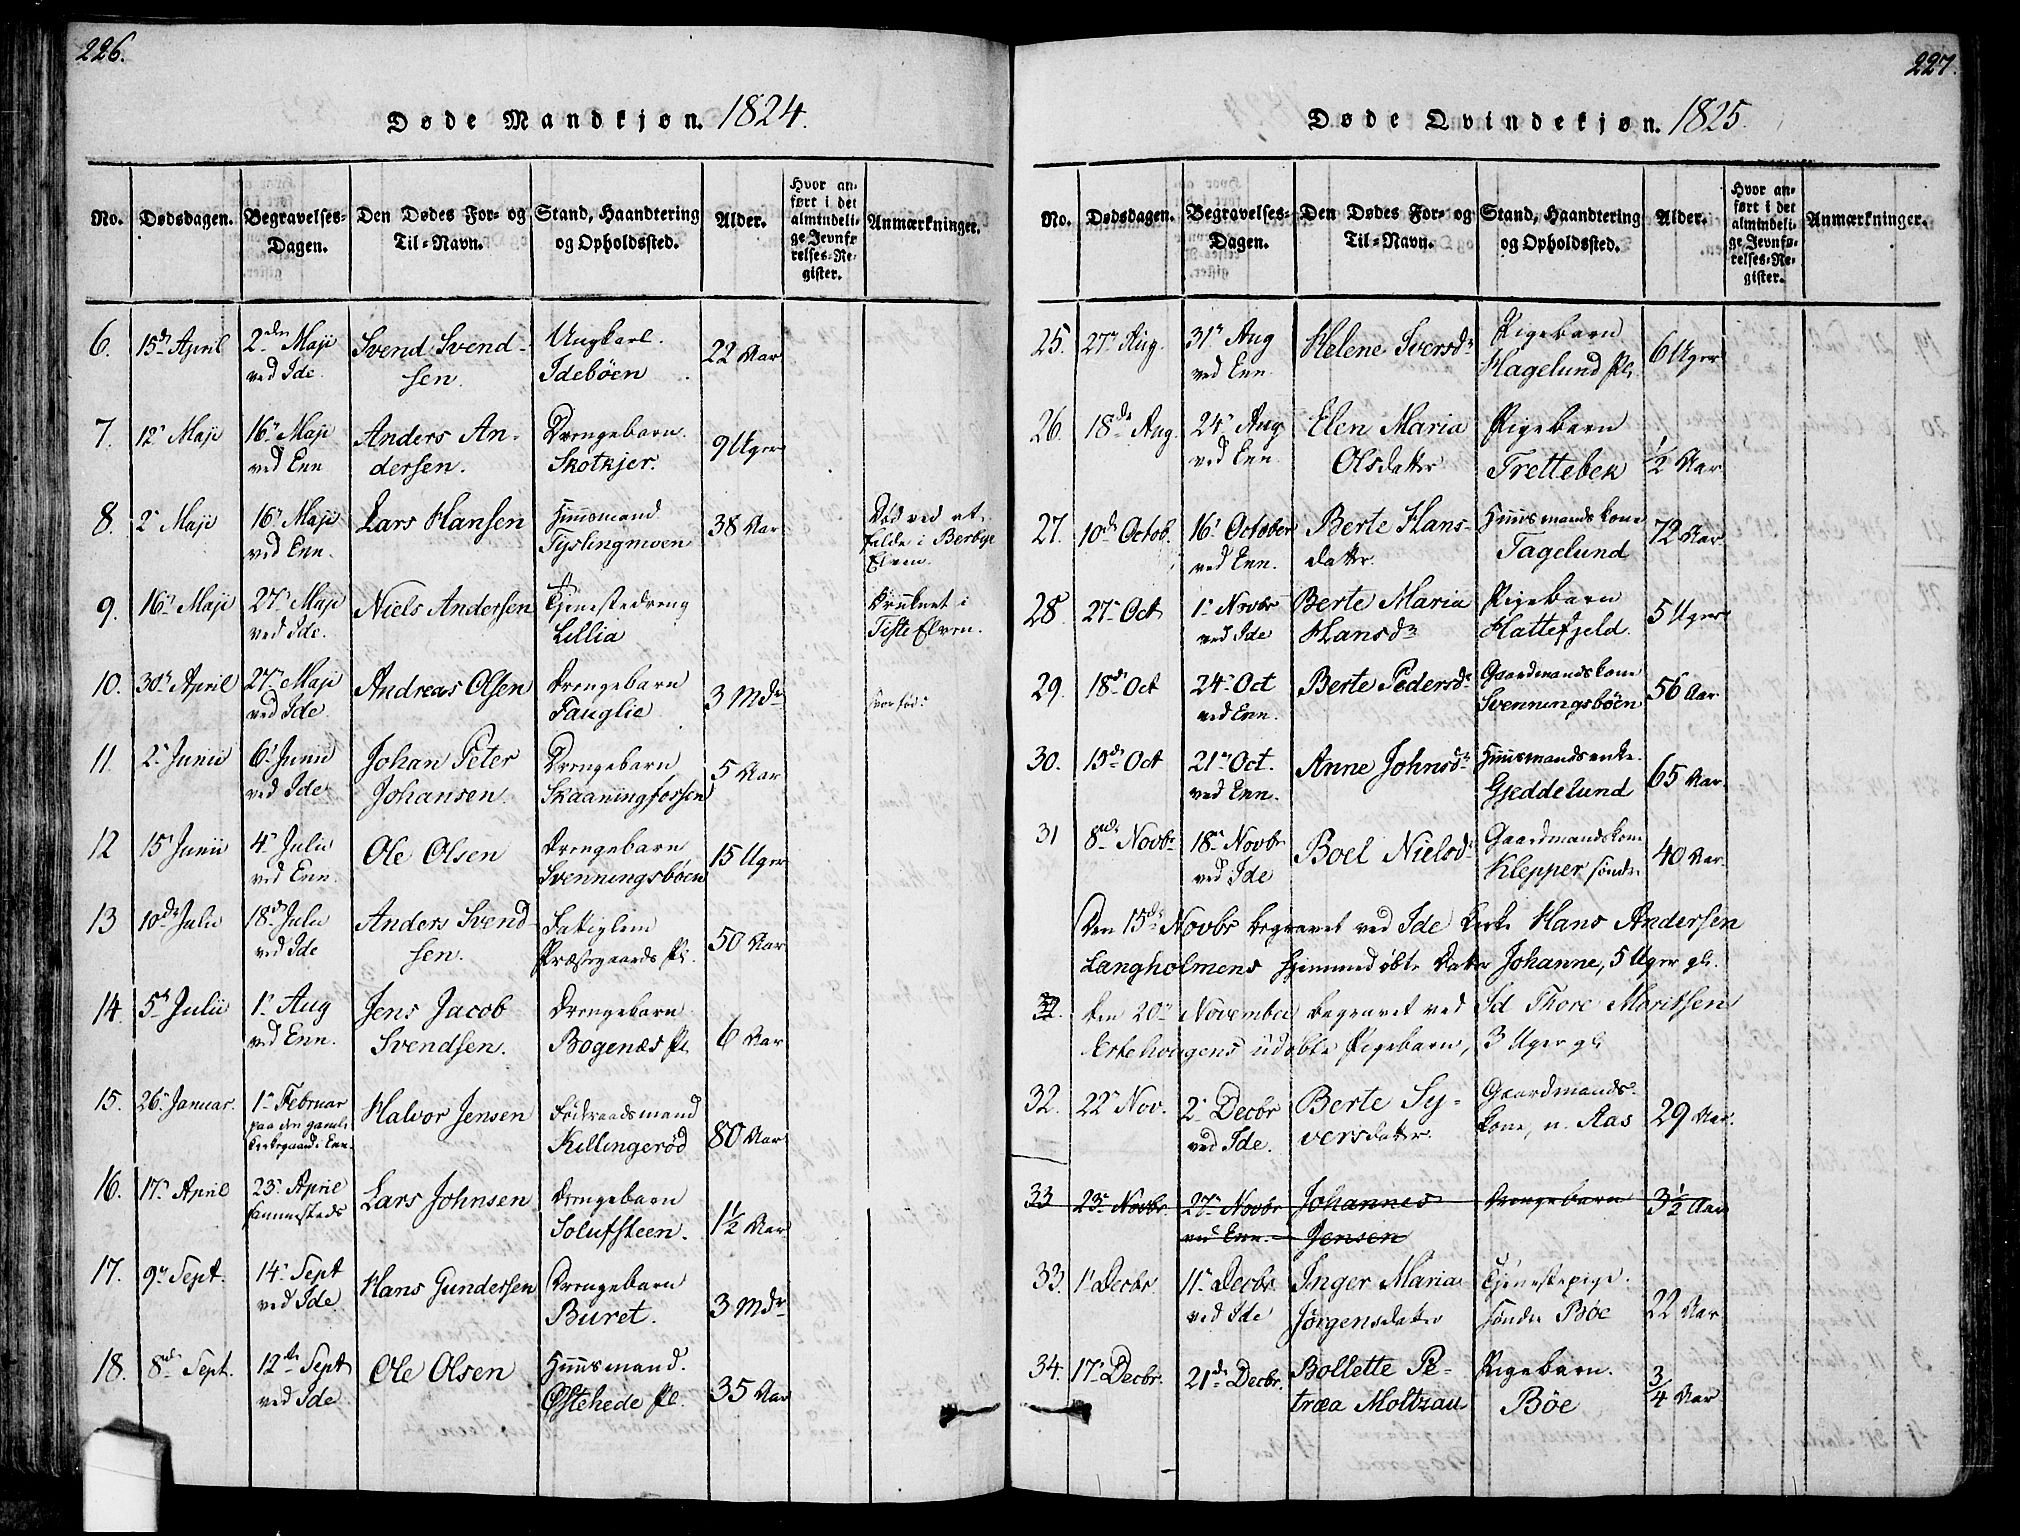 226.
Døde Mandkjøn. 1824.
No. Dødsdagen. Begravelses-Dagen. Den Dødes For- og Til-Navn. Stand, Haandtering og Opholdssted. Alder. Hvor anført i det almindelige Jevnførelses-Register. Anmærkninger.
6. 15d April 2den Maji ved Ide. Svend Svendsen. Ungkarl. Idebøen 22 Aar
7. 12t Maji 16t Maji ved Enn Anders Andersen. Drengebarn. Skotkjer. 9 Uger
8. 2 Maji 16t Maji ved Enn. Lars Hansen Huusmand Tyslingmoen 38 Aar Død ved at falde i Berbye Elven.
9. 16t Maji 27t Maji ved Ide. Niels Andersen Tjenestedreng Lillia Druknet i Tiste Elven.
10. 30t April 27t Maji ved Ide Andreas Olsen Drengebarn Fauglie 3 Mdr
11. 2 Junii 6t Junii ved Ide Johan Peter Johansen. Drengebarn Skaaningfossen 5 Aar
12 15t Junii 4t Julii ved Enn. Ole Olsen Drengebarn Svenningsbøen 15 Uger
13 10de Julii 18d Julii ved Ide Anders Svendsen. Fattiglem Præstegaards Pl. 50 Aar
14. 5t Julii 1t Aug ved Enn. Jens Jacob Svendsen. Drengebarn Bogenæs Pl. 6 Aar
15. 26t Januar. 1t Februar paa den gamle Kirkegaard i Enn. Halvor Jensen Føderaadsmand Killingerød 80 Aar
16. 17t April 23t April sammesteds Lars Johnsen Drengebarn Solufsteen. 1½ Aar
17. 9t Sept. 14t Sept ved Ide Hans Gundersen Drengebarn Buret. 3 Mdr
18. 8de Sept. 12te Sept ved Ide Ole Olsen Huusmand. Østehede Pl. 35 Aar
227.
Døde Qvindekjøn. 1825.
No. Dødsdagen. Begravelses-Dagen. Den Dødes For- og Til-Navn. Stand, Haandtering og Opholdssted. Alder. Hvor anført i det almindelige Jevnførelses-Register. Anmærkninger.
25. 27t Aug. 31t Aug ved Enn. Helene Iversdr Pigebarn Hagelund Pl. 6 Uger
26. 18de Aug. 24t Aug ved Enn. Elen Maria Olsdatter Pigebarn Trettebek ½ Aar
27. 10de Octob. 16t October ved Enn. Berte Hansdatter. Huusmandskone Tagelund 72 Aar
28. 27t Oct 1t Novbr ved Ide Berte Maria Hansdr Pigebarn Hattefjeld. 5 Uger
29. 18d Oct 24t Oct ved Enn. Berte Pedersdr Gaardmandskone Svenningsbøen 56 Aar
30. 13de Oct 21t Oct. ved Enn. Anne Johnsdr Huusmandsenke. Gjeddelund 65 Aar.
31 8de Novbr 18t Novbr ved Ide Boel Nielsdr Gaardmandskone Klepper søndre 40 Aar.
Den 15de Novbr begravet ved Ide Kirke Hans Andersen
Langholmens hjemmedøbte Datter Johanne, 5 Uger gl.
32. Den 20t November begravet ved Id Thore Moritsen
Ertehougens udøbte Pigebarn, 3 Uger gl.
32. 22t Nov. 2t Decbr ved Ide. Berte Syversdatter. Gaardmandskone, n. Aas 29 Aar.
33 23t Novbr. 27t Novbr ved Enn. Johannes Jensen Drengebarn 3½ Aar
33. 1t Decbr. 11t Decbr. ved Ide Inger Maria Jørgensdatter Tjenestepige. søndre Bøe 22 Aar
34. 17t Decbr. 21de Decbr. Bollette Petræa Moltzau Pigebarn. Bøe ¾ Aar